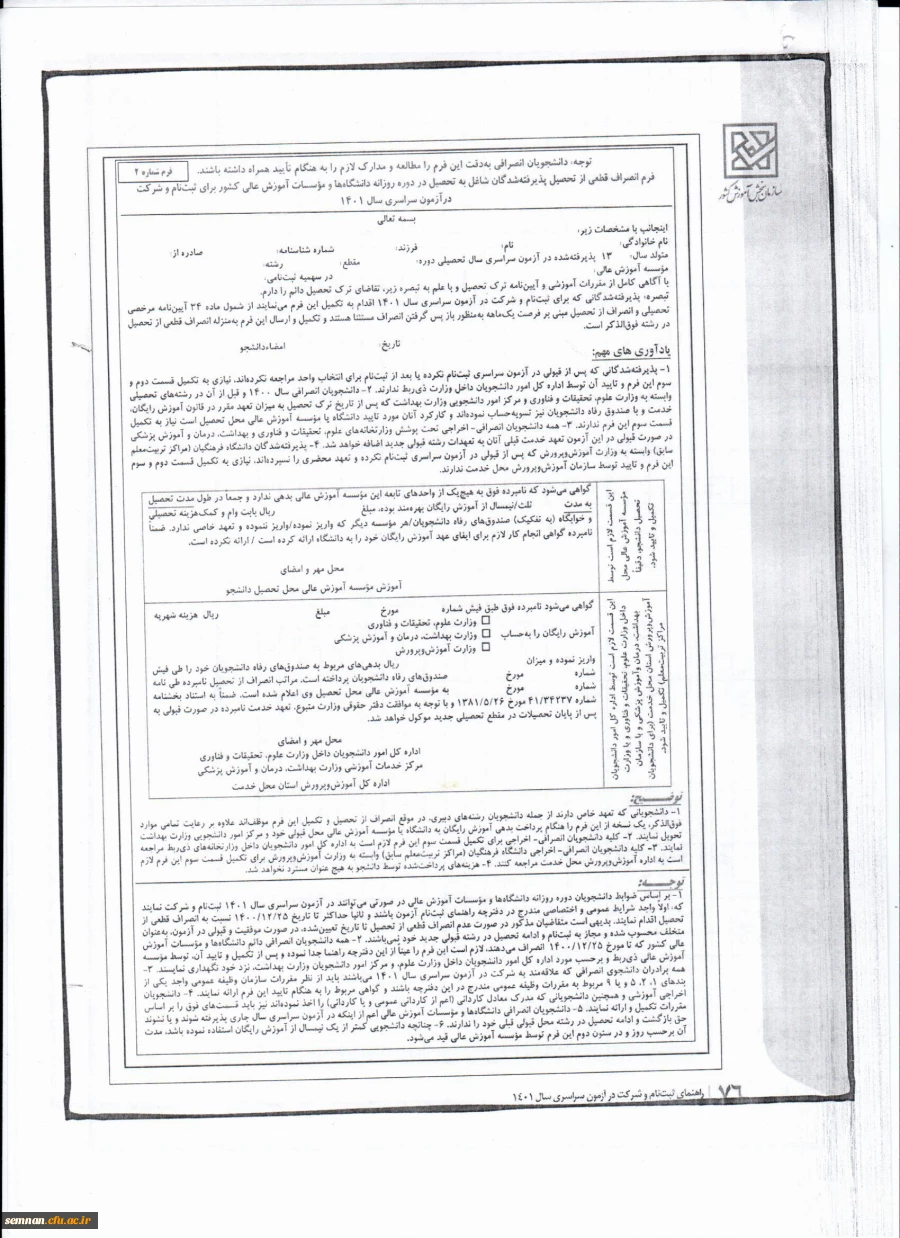 سازمان سنجش آموزش کشور
توجه: دانشجویان انصرافی به‌دقت این فرم را مطالعه و مدارک لازم را به هنگام تأیید همراه داشته باشند.
فرم شماره ۲
فرم انصراف قطعی از تحصیل پذیرفته‌شدگان شاغل به تحصیل در دوره روزانه دانشگاه‌ها و مؤسسات آموزش عالی کشور برای ثبت‌نام و شرکت
درآزمون سراسری سال ۱۴۰۱
بسمه تعالی
اینجانب با مشخصات زیر:
نام خانوادگی: نام: فرزند: شماره شناسنامه: صادره از:
متولد سال: ۱۳ پذیرفته‌شده در آزمون سراسری سال تحصیلی دوره: مقطع: رشته:
مؤسسه آموزش عالی: در سهمیه ثبت‌نامی:
با آگاهی کامل از مقررات آموزشی و آیین‌نامه ترک تحصیل و با علم به تبصره زیر، تقاضای ترک تحصیل دائم را دارم.
تبصره: پذیرفته‌شدگانی که برای ثبت‌نام و شرکت در آزمون سراسری سال ۱۴۰۱ اقدام به تکمیل این فرم می‌نمایند از شمول ماده ۲۴ آیین‌نامه مرخصی
تحصیلی و انصراف از تحصیل مبنی بر فرصت یک‌ماهه به‌منظور باز پس گرفتن انصراف مستثنا هستند و تکمیل و ارسال این فرم به‌منزله انصراف قطعی از تحصیل
در رشته فوق‌الذکر است.
تاریخ: امضاءدانشجو
یادآوری های مهم:
۱- پذیرفته‌شدگانی که پس از قبولی در آزمون سراسری ثبت‌نام نکرده یا بعد از ثبت‌نام برای انتخاب واحد مراجعه نکرده‌اند، نیازی به تکمیل قسمت دوم و
سوم این فرم و تایید آن توسط اداره کل امور دانشجویان داخل وزارت ذی‌ربط ندارند. ۲- دانشجویان انصرافی سال ۱۴۰۰ و قبل از آن در رشته‌های تحصیلی
وابسته به وزارت علوم، تحقیقات و فناوری و مرکز امور دانشجویی وزارت بهداشت که پس از تاریخ ترک تحصیل به میزان تعهد مقرر در قانون آموزش رایگان،
خدمت و با صندوق رفاه دانشجویان نیز تسویه‌حساب نموده‌اند و کارکرد آنان مورد تایید دانشگاه یا مؤسسه آموزش عالی محل تحصیل است نیاز به تکمیل
قسمت سوم این فرم ندارند. ۳- همه دانشجویان انصرافی- اخراجی تحت پوشش وزارتخانه‌های علوم، تحقیقات و فناوری و بهداشت، درمان و آموزش پزشکی
در صورت قبولی در این آزمون تعهد خدمت قبلی آنان به تعهدات رشته قبولی جدید اضافه خواهد شد. ۴- پذیرفته‌شدگان دانشگاه فرهنگیان (مراکز تربیت‌معلم
سابق) وابسته به وزارت آموزش‌وپرورش که پس از قبولی در آزمون سراسری ثبت‌نام نکرده و تعهد محضری را نسپرده‌اند، نیازی به تکمیل قسمت دوم و سوم
این فرم و تایید توسط سازمان آموزش‌وپرورش محل خدمت ندارند.
این قسمت لازم است توسط
مؤسسه آموزش عالی محل
تحصیل دانشجو، دقیقاً
تکمیل و تایید شود.
گواهی می‌شود که نامبرده فوق به هیچ‌یک از واحدهای تابعه این مؤسسه آموزش عالی بدهی ندارد و جمعاً در طول مدت تحصیل
به مدت ثلث/نیمسال از آموزش رایگان بهره‌مند بوده، مبلغ ریال بابت وام و کمک‌هزینه تحصیلی
و خوابگاه (به تفکیک) صندوق‌های رفاه دانشجویان/هر مؤسسه دیگر که واریز نموده/واریز ننموده و تعهد خاصی ندارد. ضمناً
نامبرده گواهی انجام کار لازم برای ایفای عهد آموزش رایگان خود را به دانشگاه ارائه کرده است / ارائه نکرده است.
محل مهر و امضای
آموزش مؤسسه آموزش عالی محل تحصیل دانشجو
این قسمت لازم است توسط اداره کل امور دانشجویان
داخل وزارت علوم، تحقیقات و فناوری و یا وزارت
بهداشت، درمان و آموزش پزشکی و یا سازمان
آموزش‌وپرورش استان محل خدمت (برای دانشجویان
مراکز تربیت‌معلم) تکمیل و تایید شود.
گواهی می‌شود نامبرده فوق طبق فیش شماره مورخ مبلغ ریال هزینه شهریه
آموزش رایگان را به‌حساب
وزارت علوم، تحقیقات و فناوری
وزارت بهداشت، درمان و آموزش پزشکی
وزارت آموزش‌وپرورش
واریز نموده و میزان ریال بدهی‌های مربوط به صندوق‌های رفاه دانشجویان خود را طی فیش
شماره مورخ صندوق‌های رفاه دانشجویان پرداخته است. مراتب انصراف از تحصیل نامبرده طی نامه
شماره مورخ به مؤسسه آموزش عالی محل تحصیل وی اعلام شده است. ضمناً به استناد بخشنامه
شماره ۴۱/۳۴۲۳۷ مورخ ۱۳۸۱/۵/۲۶ و با توجه به موافقت دفتر حقوقی وزارت متبوع، تعهد خدمت نامبرده در صورت قبولی به
پس از پایان تحصیلات در مقطع تحصیلی جدید موکول خواهد شد.
محل مهر و امضای
اداره کل امور دانشجویان داخل وزارت علوم، تحقیقات و فناوری
مرکز خدمات آموزشی وزارت بهداشت، درمان و آموزش پزشکی
اداره کل آموزش‌وپرورش استان محل خدمت
توضیح:
۱- دانشجویانی که تعهد خاص دارند از جمله دانشجویان رشته‌های دبیری، در موقع انصراف از تحصیل و تکمیل این فرم موظف‌اند علاوه بر رعایت تمامی موارد
فوق‌الذکر، یک نسخه از این فرم را هنگام پرداخت بدهی آموزش رایگان به دانشگاه یا مؤسسه آموزش عالی محل قبولی خود و مرکز امور دانشجویی وزارت بهداشت
تحویل نمایند. ۲- کلیه دانشجویان انصرافی- اخراجی برای تکمیل قسمت سوم این فرم لازم است به اداره کل امور دانشجویان داخل وزارتخانه‌های ذی‌ربط مراجعه
نمایند. ۳- کلیه دانشجویان انصرافی- اخراجی دانشگاه فرهنگیان (مراکز تربیت‌معلم سابق) وابسته به وزارت آموزش‌وپرورش برای تکمیل قسمت سوم این فرم لازم
است به اداره آموزش‌وپرورش محل خدمت مراجعه کنند. ۴- هزینه‌های پرداخت‌شده توسط دانشجو به هیچ عنوان مسترد نخواهد شد.
توجه:
۱- بر اساس ضوابط دانشجویان دوره روزانه دانشگاه‌ها و مؤسسات آموزش عالی در صورتی می‌توانند در آزمون سراسری سال ۱۴۰۱ ثبت‌نام و شرکت نمایند
که: اولاً واجد شرایط عمومی و اختصاصی مندرج در دفترچه راهنمای ثبت‌نام آزمون باشند و ثانیا حداکثر تا تاریخ ۱۴۰۰/۱۲/۲۵ نسبت به انصراف قطعی از
تحصیل اقدام نمایند. بدیهی است متقاضیان مذکور در صورت عدم انصراف قطعی از تحصیل تا تاریخ تعیین‌شده، در صورت موفقیت و قبولی در آزمون، به‌عنوان
متخلف محسوب شده و مجاز به ثبت‌نام و ادامه تحصیل در رشته قبولی جدید خود نمی‌باشند. ۲- همه دانشجویان انصرافی دائم دانشگاه‌ها و مؤسسات آموزش
عالی کشور که تا مورخ ۱۴۰۰/۱۲/۲۵ انصراف می‌دهند، لازم است این فرم را عیناً از این دفترچه راهنما جدا نموده و پس از تکمیل و تایید آن، توسط مؤسسه
آموزش عالی ذی‌ربط و برحسب مورد اداره کل امور دانشجویان داخل وزارت علوم، و مرکز امور دانشجویان وزارت بهداشت، نزد خود نگهداری نمایند. ۳-
همه برادران دانشجوی انصرافی که علاقه‌مند به شرکت در آزمون سراسری سال ۱۴۰۱ می‌باشند باید از نظر مقررات سازمان وظیفه عمومی واجد یکی از
بندهای ۱، ۲، ۵ و یا ۹ مربوط به مقررات وظیفه عمومی مندرج در این دفترچه باشند و گواهی مربوط را به هنگام تایید این فرم ارائه نمایند. ۴- دانشجویان
اخراجی آموزشی و همچنین دانشجویانی که مدرک معادل کاردانی (اعم از کاردانی عمومی و یا کاردانی) را اخذ نموده‌اند نیز باید قسمت‌های فوق را بر اساس
مقررات تکمیل و ارائه نمایند. ۵- دانشجویان انصرافی دانشگاه‌ها و مؤسسات آموزش عالی اعم از اینکه در آزمون سراسری سال جاری پذیرفته شوند و یا نشوند
حق بازگشت و ادامه تحصیل در رشته محل قبولی قبلی خود را ندارند. ۶- چنانچه دانشجویی کمتر از یک نیمسال از آموزش رایگان استفاده نموده باشد، مدت
آن برحسب روز و در ستون دوم این فرم توسط مؤسسه آموزش عالی قید می‌شود.
۷۶ راهنمای ثبت‌نام و شرکت در آزمون سراسری سال ۱۴۰۱
semnan.cfu.ac.ir